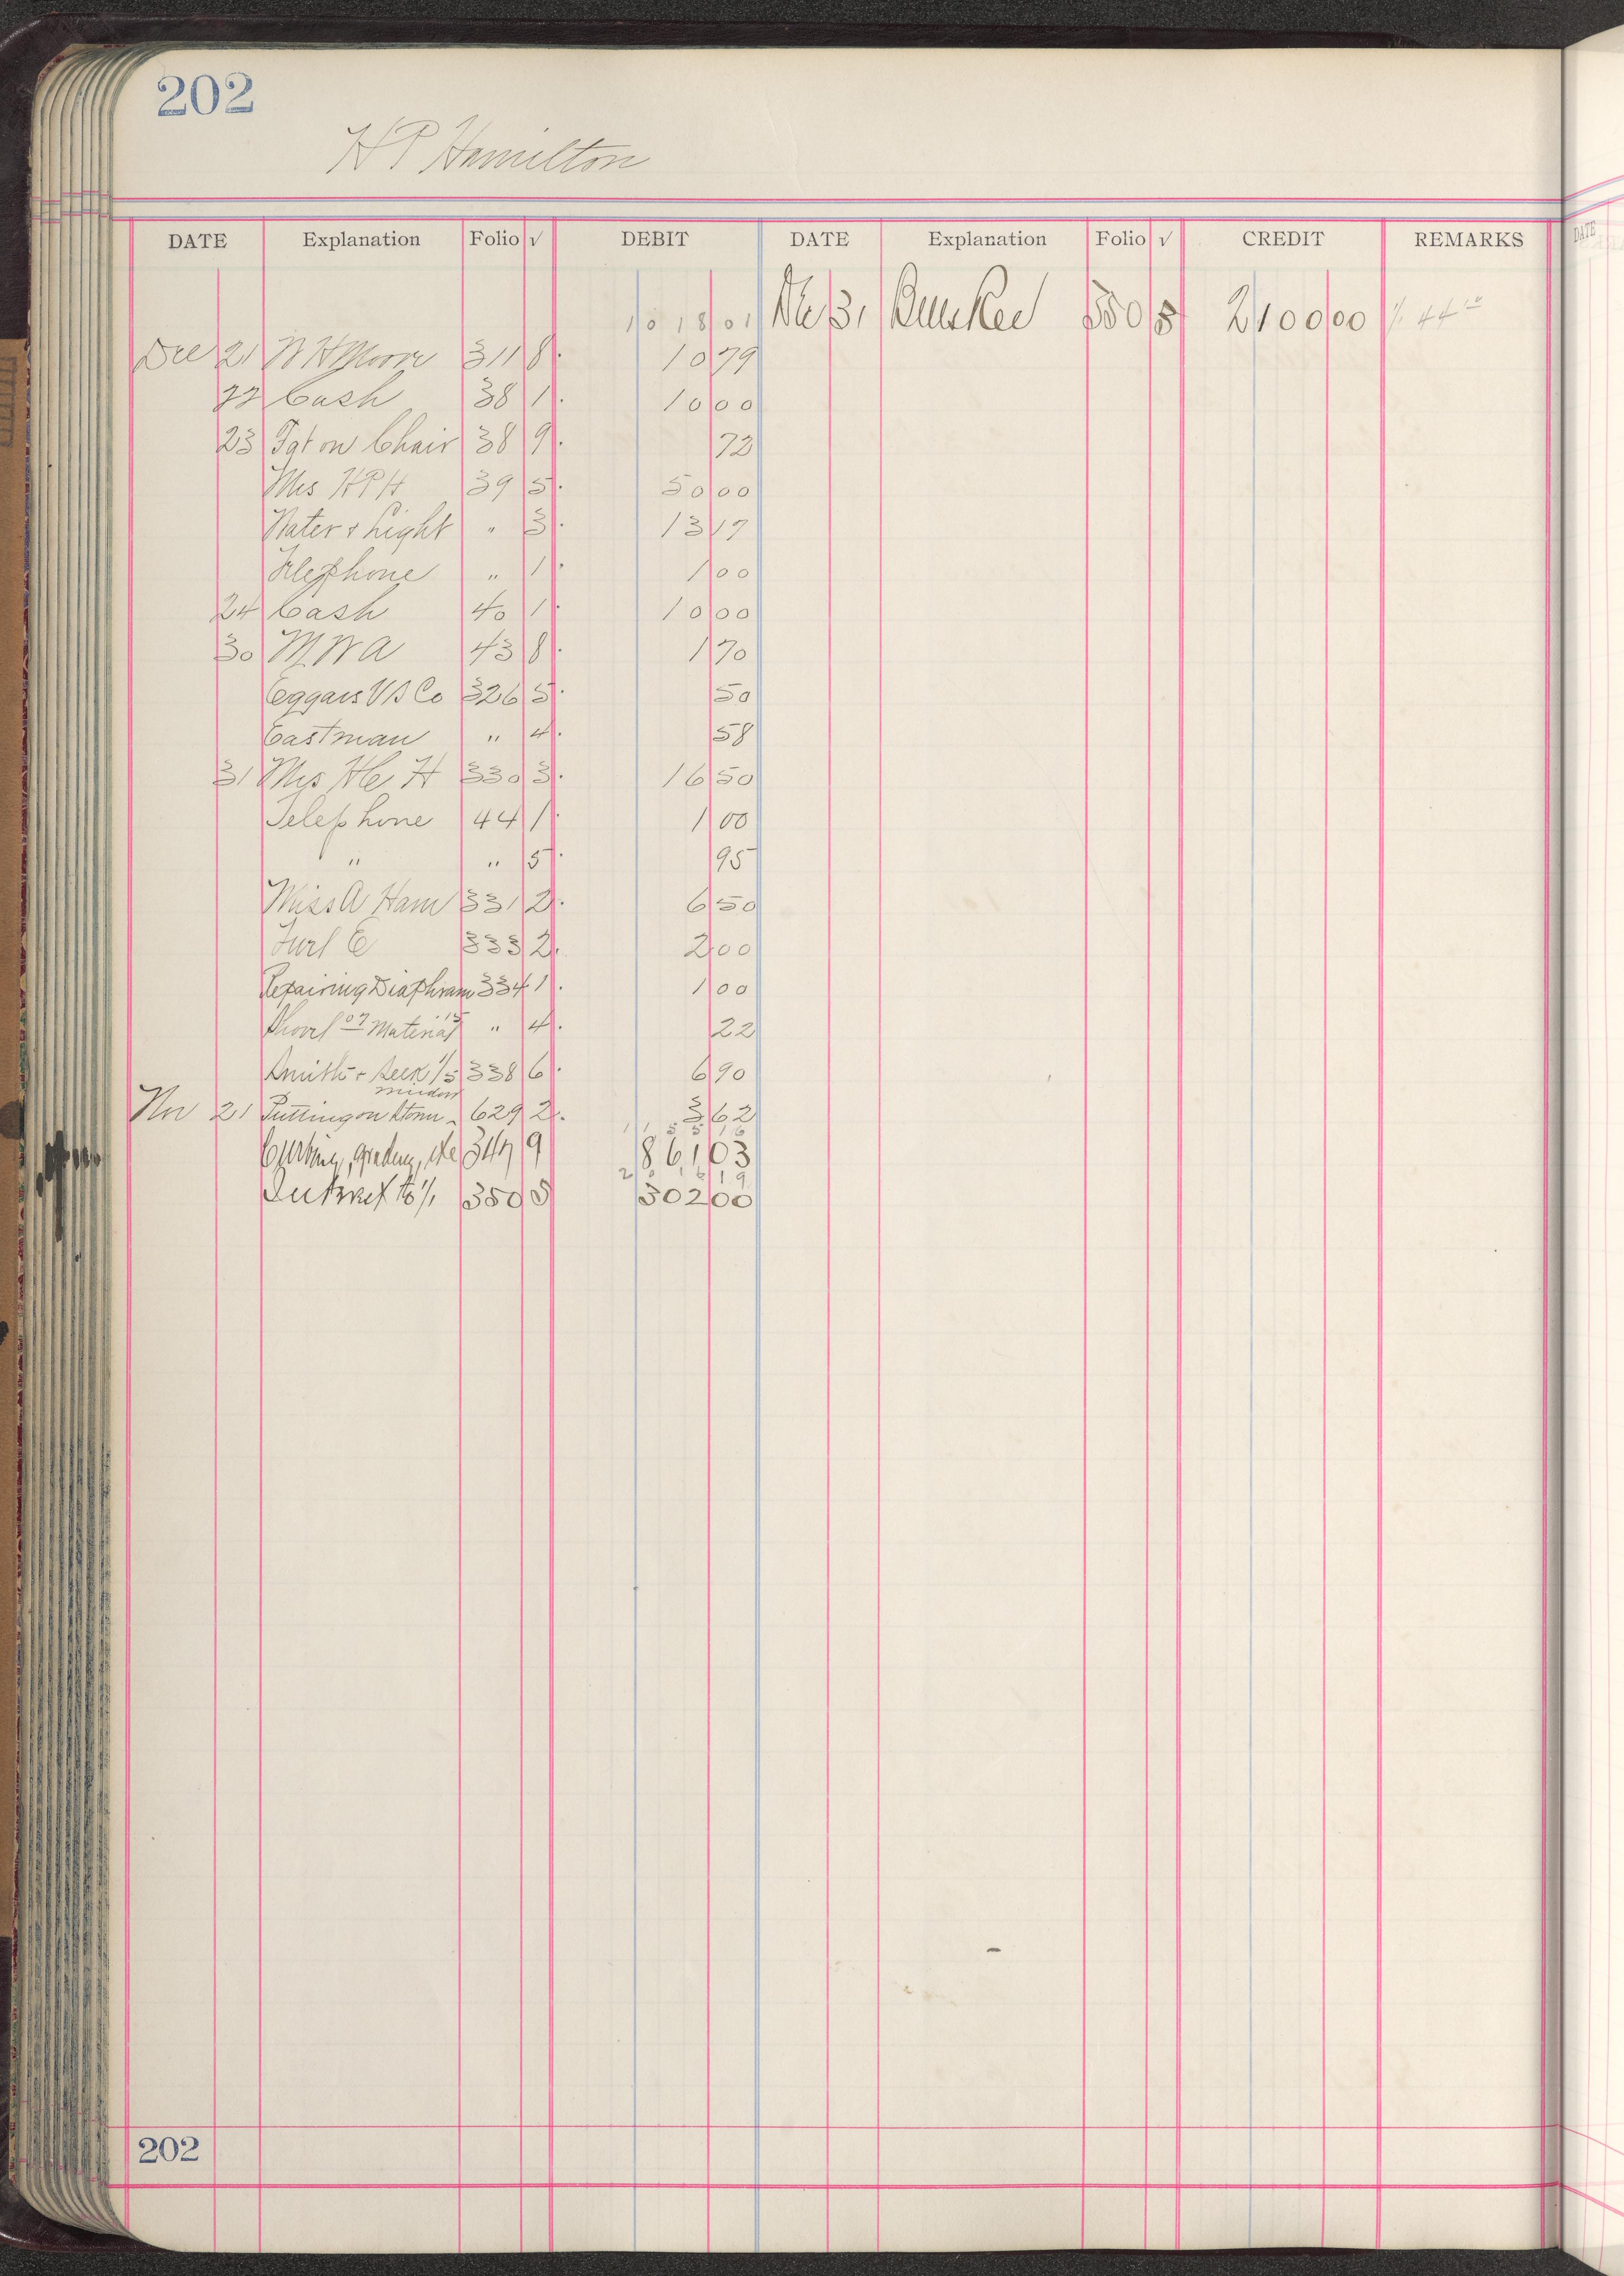 202
H P Hamilton
DATE Explanation Folio √ DEBIT DATE Explanation Folio √ CREDIT REMARKS
10 18 01 31 350 8 2100 00 44
Dec 21 W H Moore 311 8 10 79
22 Cash 38 1 10 00
23 Fgt on Chair 38 9 72
Mrs H P H 39 5 50 00
Water & Light " 3 13 17
Telephone " 1 1 00
24 Cash 40 1 10 00
30 M W A 43 8 1 70
Eggars V S Co 326 5 50
Eastman " 4 58
31 Mrs H 330 3 16 50
Telephone 44 1 1 00
" " 5 95
Miss A Ham 331 2 6 50
333 2 2 00
Repairing Diaphram 334 1 1 00
Material " 4 22
Smith & 1/5 338 6 6 90
Nov 21 Putting on Storm 629 2 3 62
11 55 16
Curbing, grading, etc 347 9 861 03
20 16 19
Interest to 1/1 350 8 302 00
202
DATE